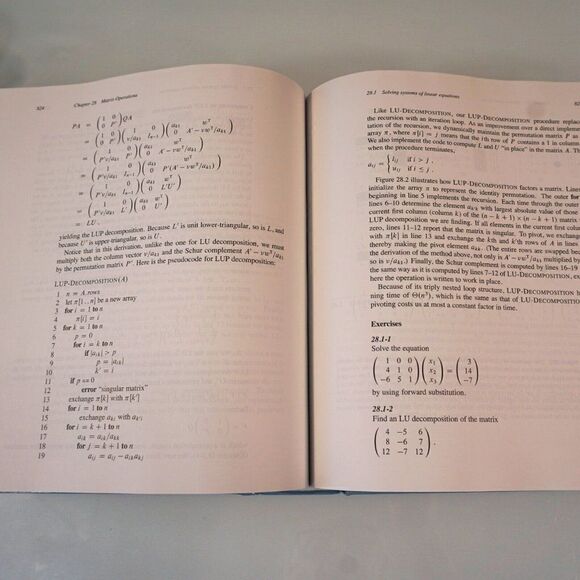 824 Chapter 28 Matrix Operations
PA = ( 1 0 ; 0 P′ ) QA
= ( 1 0 ; 0 P′ ) ( 1 0 ; v/a_k1 I_n−1 ) ( a_k1 w^T ; 0 A′ − vw^T/a_k1 )
= ( 1 0 ; P′v/a_k1 P′ ) ( a_k1 w^T ; 0 A′ − vw^T/a_k1 )
= ( 1 0 ; P′v/a_k1 I_n−1 ) ( a_k1 w^T ; 0 P′(A′ − vw^T/a_k1) )
= ( 1 0 ; P′v/a_k1 I_n−1 ) ( a_k1 w^T ; 0 L′U′ )
= ( 1 0 ; P′v/a_k1 L′ ) ( a_k1 w^T ; 0 U′ )
= LU ,
yielding the LUP decomposition. Because L′ is unit lower-triangular, so is L, and
because U′ is upper-triangular, so is U.
Notice that in this derivation, unlike the one for LU decomposition, we must
multiply both the column vector v/a_k1 and the Schur complement A′ − vw^T/a_k1
by the permutation matrix P′. Here is the pseudocode for LUP decomposition:
LUP-DECOMPOSITION(A)
1 n = A.rows
2 let π[1 . . n] be a new array
3 for i = 1 to n
4 π[i] = i
5 for k = 1 to n
6 p = 0
7 for i = k to n
8 if |a_ik| > p
9 p = |a_ik|
10 k′ = i
11 if p == 0
12 error “singular matrix”
13 exchange π[k] with π[k′]
14 for i = 1 to n
15 exchange a_ki with a_k′i
16 for i = k + 1 to n
17 a_ik = a_ik/a_kk
18 for j = k + 1 to n
19 a_ij = a_ij − a_ik a_kj
28.1 Solving systems of linear equations
Like LU-DECOMPOSITION, our LUP-DECOMPOSITION procedure replac
the recursion with an iteration loop. As an improvement over a direct impleme
tation of the recursion, we dynamically maintain the permutation matrix P as
array π, where π[i] = j means that the ith row of P contains a 1 in column
We also implement the code to compute L and U “in place” in the matrix A. Th
when the procedure terminates,
a_ij = { l_ij if i > j ,
u_ij if i ≤ j .
Figure 28.2 illustrates how LUP-DECOMPOSITION factors a matrix. Lines
initialize the array π to represent the identity permutation. The outer for
beginning in line 5 implements the recursion. Each time through the outer
lines 6–10 determine the element a_k′k with largest absolute value of those
current first column (column k) of the (n − k + 1) × (n − k + 1) matrix
LUP decomposition we are finding. If all elements in the current first colum
zero, lines 11–12 report that the matrix is singular. To pivot, we exchang
with π[k] in line 13 and exchange the kth and k′th rows of A in lines
thereby making the pivot element a_kk. (The entire rows are swapped bec
the derivation of the method above, not only is A′ − vw^T/a_k1 multiplied by
so is v/a_k1.) Finally, the Schur complement is computed by lines 16–19
the same way as it is computed by lines 7–12 of LU-DECOMPOSITION, exc
here the operation is written to work in place.
Because of its triply nested loop structure, LUP-DECOMPOSITION ha
ning time of Θ(n³), which is the same as that of LU-DECOMPOS
pivoting costs us at most a constant factor in time.
Exercises
28.1-1
Solve the equation
( 1 0 0 ; 4 1 0 ; −6 5 1 ) ( x_1 ; x_2 ; x_3 ) = ( 3 ; 14 ; −7 )
by using forward substitution.
28.1-2
Find an LU decomposition of the matrix
( 4 −5 6 ; 8 −6 7 ; 12 −7 12 ) .